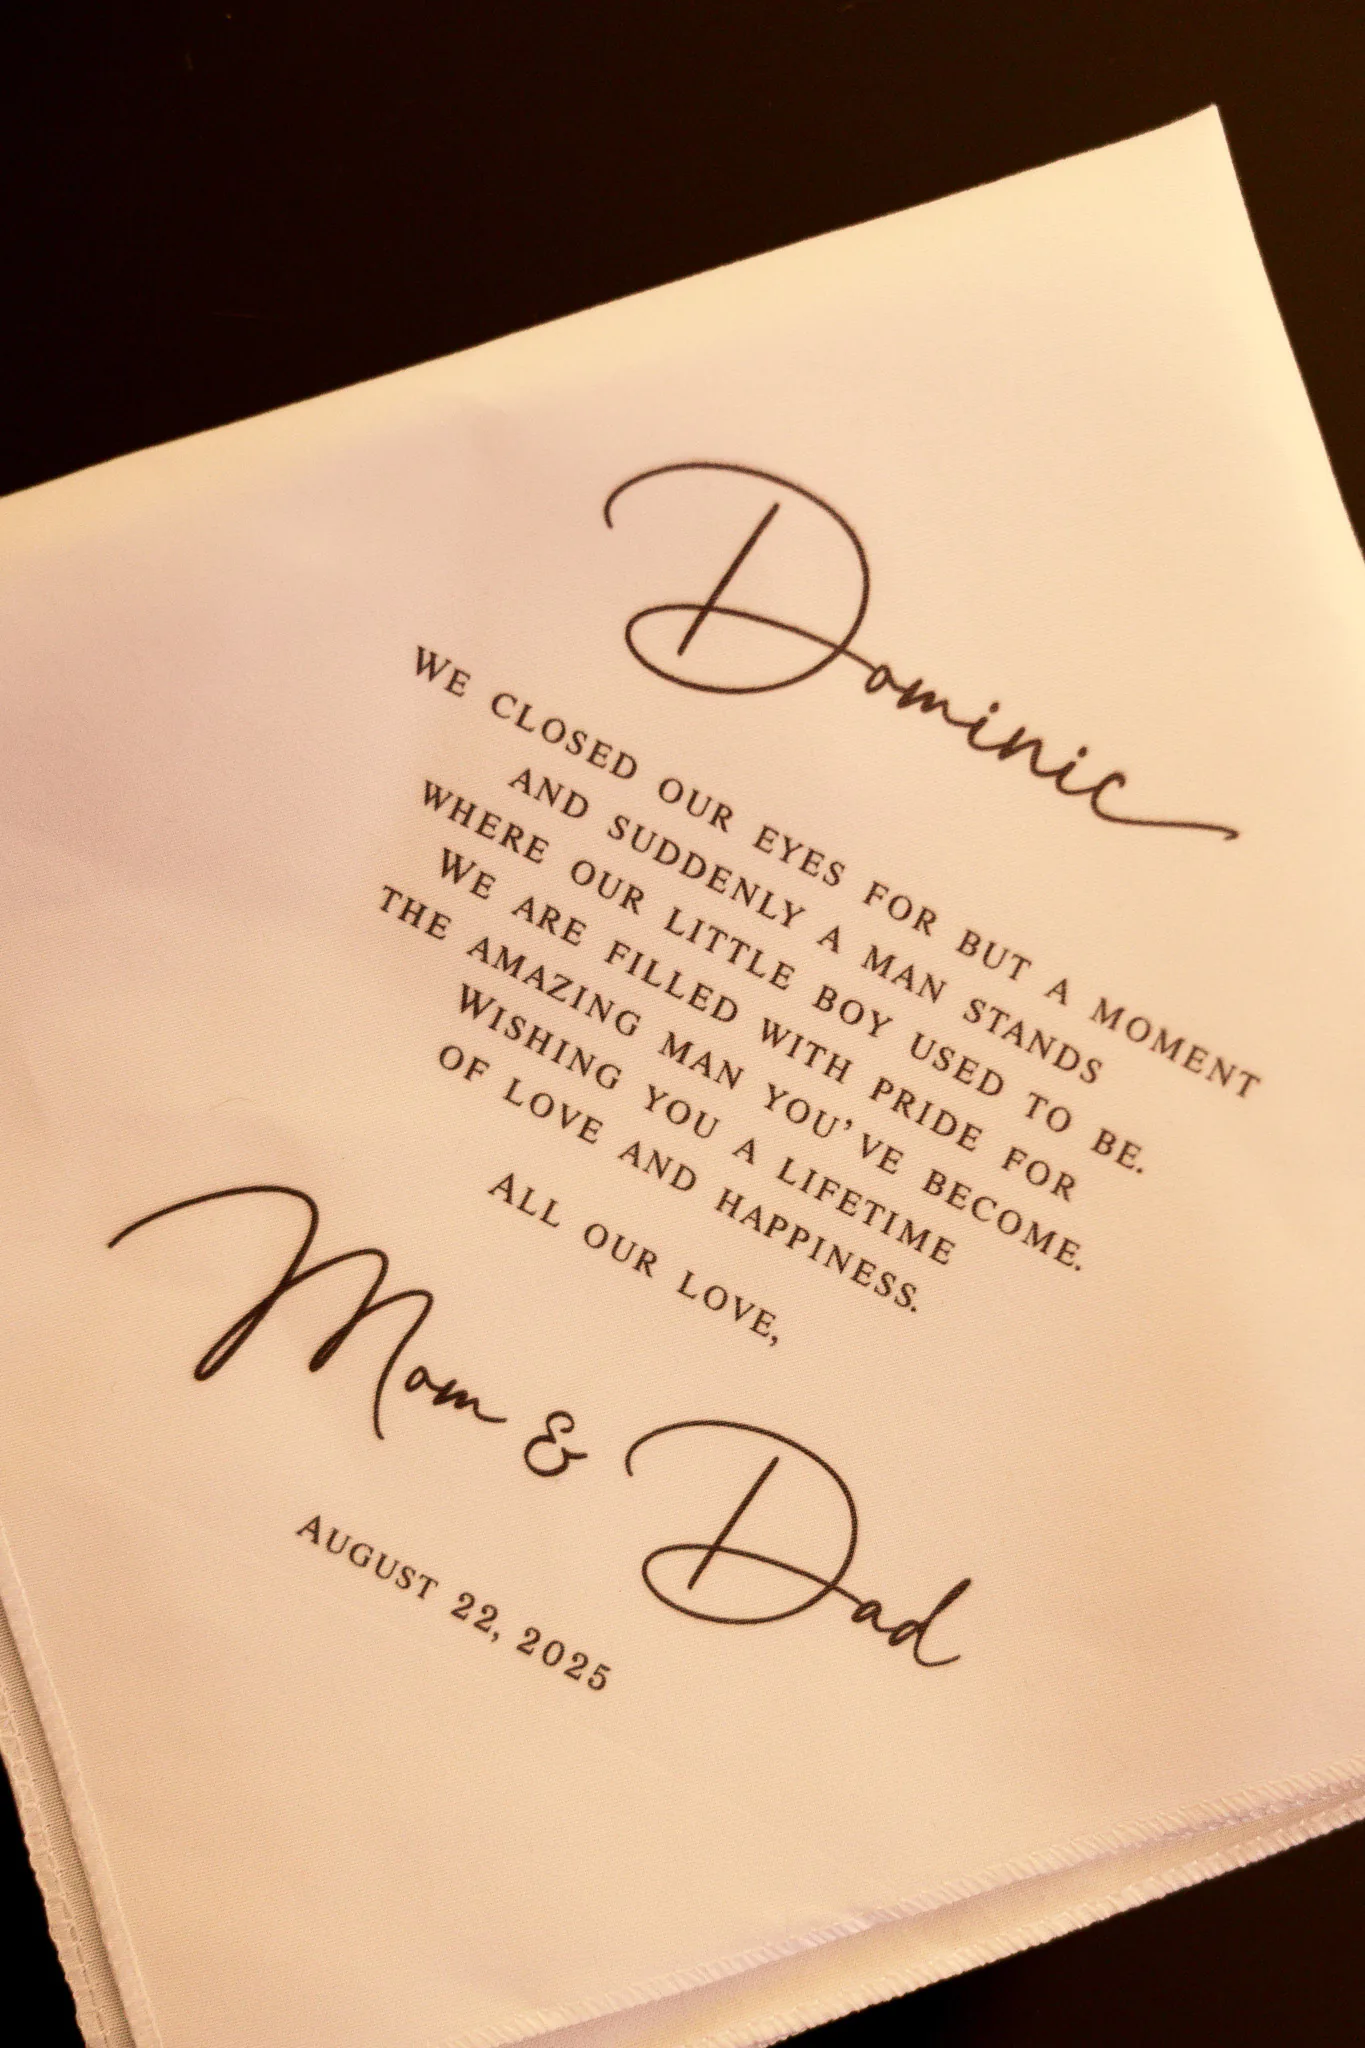 Dominic
WE CLOSED OUR EYES FOR BUT A MOMENT
AND SUDDENLY A MAN STANDS
WHERE OUR LITTLE BOY USED TO BE.
WE ARE FILLED WITH PRIDE FOR
THE AMAZING MAN YOU'VE BECOME.
WISHING YOU A LIFETIME
OF LOVE AND HAPPINESS.
ALL OUR LOVE,
Mom & Dad
AUGUST 22, 2025